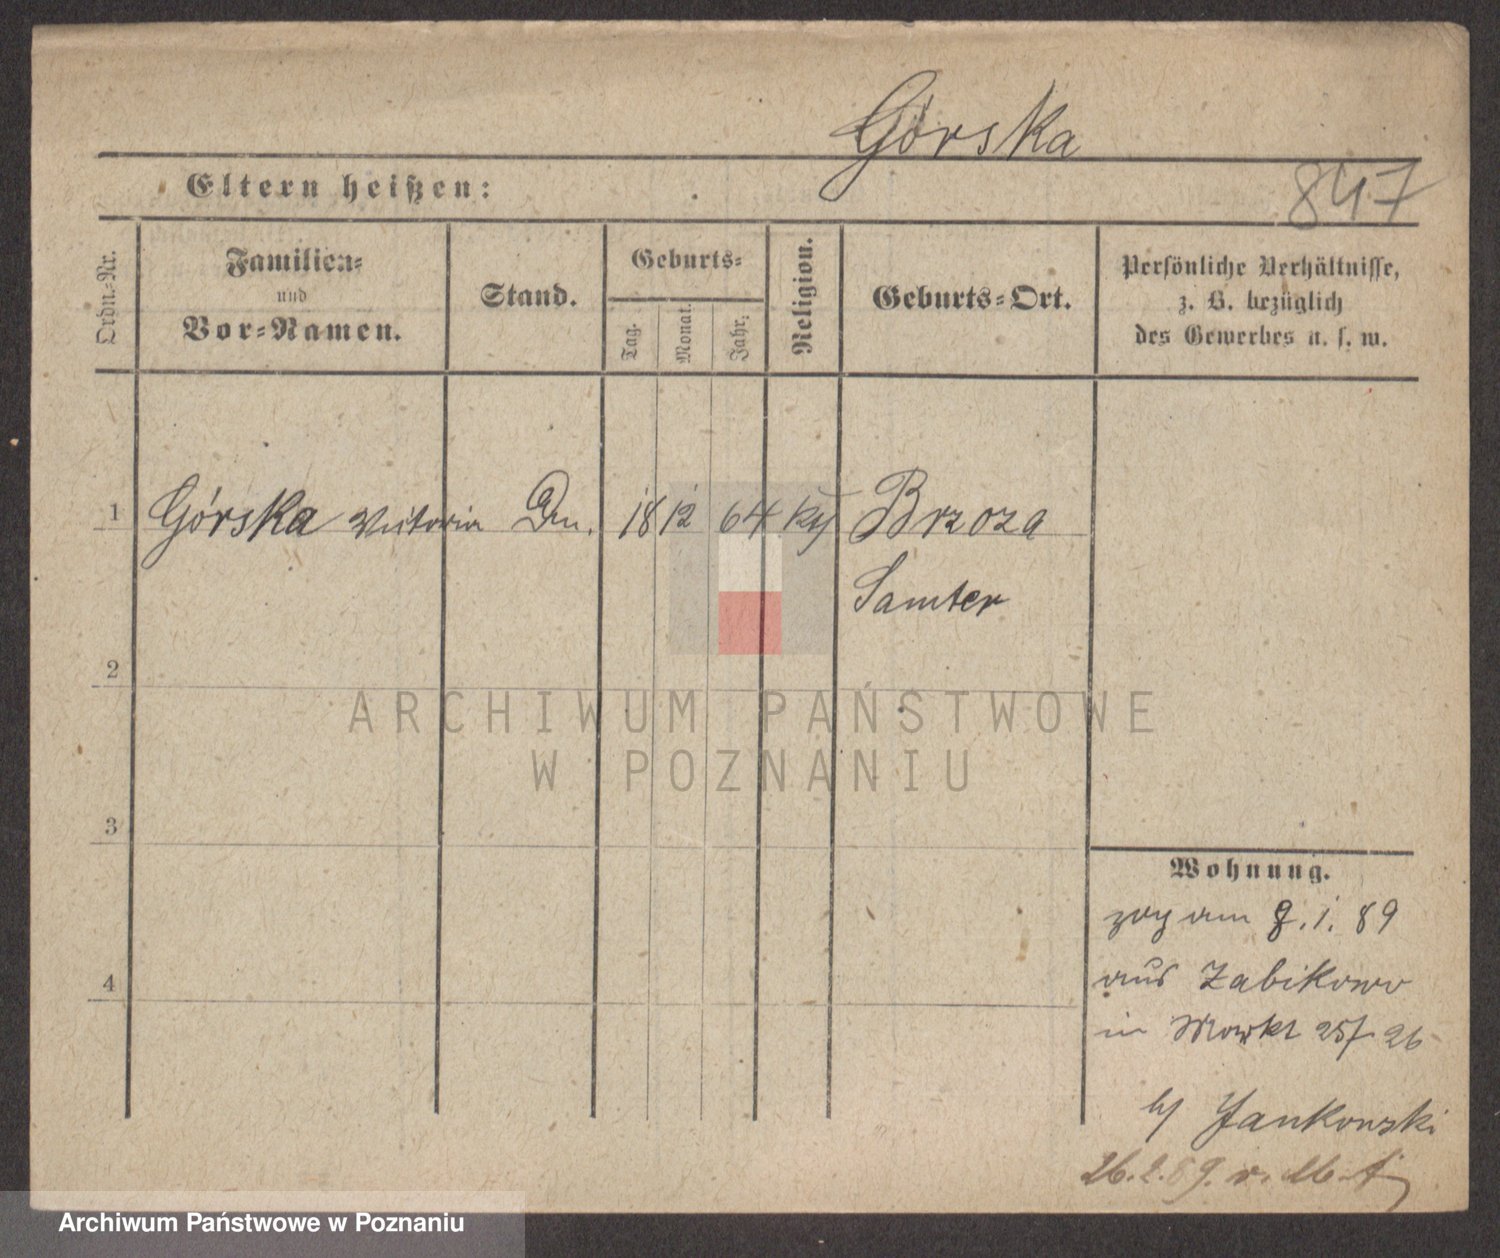 Górska
847
Eltern heißen:
Ordn.-Nr.
Familien-
und
Vor-Namen.
Stand.
Geburts-
Tag.
Monat.
Jahr.
Religion.
Geburts-Ort.
Persönliche Verhältnisse,
z. B. bezüglich
des Gewerbes u. s. w.
1 Górska Victoria Dn. 18 12 64 Brzoza
Samter
2
3
4
Wohnung.
zog am 8. 1. 89
aus Zabikowo
in Markt 25/26
by Jankowski
26. 2. 89.
ARCHIWUM PAŃSTWOWE
W POZNANIU
Archiwum Państwowe w Poznaniu